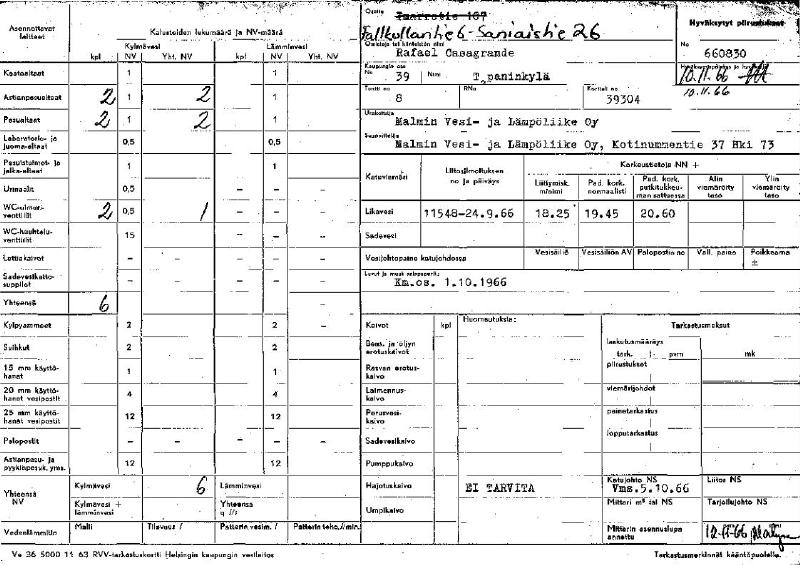 Asennettavat laitteet
Kalusteiden lukumäärä ja NV-määrä
kpl
Kylmävesi
NV
Yht. NV
kpl
Lämminvesi
NV
Yht. NV
Kaatoaltaat 1 1
Astianpesualtaat 2 1 2 1
Pesualtaat 2 1 2 1
Laboratorio- ja juoma-altaat 0,5 0,5
Pesuistuimet- ja jalka-altaat 1 1
Urinaalit 0,5 – –
WC-
venttiilit 2 0,5 1 – –
WC-huuhtelu-
venttiilit 15 – – –
Lattiakaivot – – – – –
Sadevesikatto-
suppilot – – – –
Yhteensä 6 –
Kylpyammeet 2 2
Suihkut 2 2
15 mm käyttö-
hanat 1 1
20 mm käyttö-
hanat vesipostit 4 4
25 mm käyttö-
hanat vesipostit 12 12
Palopostit – – – – –
Astianpesu- ja
pyykinpesuk. yms. 12 12
Yhteensä NV
Kylmävesi 6
Lämminvesi
Kylmävesi +
lämminvesi
Yhteensä
q l/s
Vedenlämmitin
Malli
Tilavuus l
Patterin vesim. l
Patterin teho,
Ve 36 5000 11 63 RVV-tarkastuskortti Helsingin kaupungin vesilaitos
Osoite
167
6 - Saniaistie 26
Omistaja tai kiinteistön nimi
Rafael Casagrande
Kaupungin osa
No 39 Nimi T,paninkylä
Tontti no
8
RNo
Kortteli no
39304
Urakoitsija
Malmin Vesi- ja Lämpöliike Oy
Suunnittelija
Malmin Vesi- ja Lämpöliike Oy, Kotinummentie 37 Hki 73
Hyväksytyt piirustukset
No
660830
10.11.66
10.11.66
Katuviemäri
Liitosilmoituksen
no ja päiväys
Korkeustietoja NN +
Liittymisk.
minimi
Pad. kork.
normaalisti
Pad. kork.
putkitukkeu-
man sattuessa
Alin
viemäröity
taso
Ylin
viemäröity
taso
Likavesi 11548-24.9.66 18.25 19.45 20.60
Sadevesi
Vesijohtopaine katujohdossa
Vesisäiliö
Vesisäiliön AV
Paloposti no
Vall. paine
Poikkeama
±
Km.os. 1.10.1966
Kaivot
kpl
Huomautuksia:
Tarkastusmaksut
Bens. ja öljyn
erotuskaivot
Rasvan erotus-
kaivo
Laimennus-
kaivo
Perusvesi-
kaivo
Sadevesikaivo
Pumppukaivo
Hajotuskaivo EI TARVITA
Umpikaivo
laskutusmääräys
tark. pvm mk
piirustukset
viemärijohdot
painetarkastus
lopputarkastus
Katujohto NS
Vms.5.10.66
Liitos NS
Mittari m³ ial NS
Tarjoilujohto NS
Mittarin asennuslupa
annettu
12-11-66
Tarkastusmerkinnät kääntöpuolella.